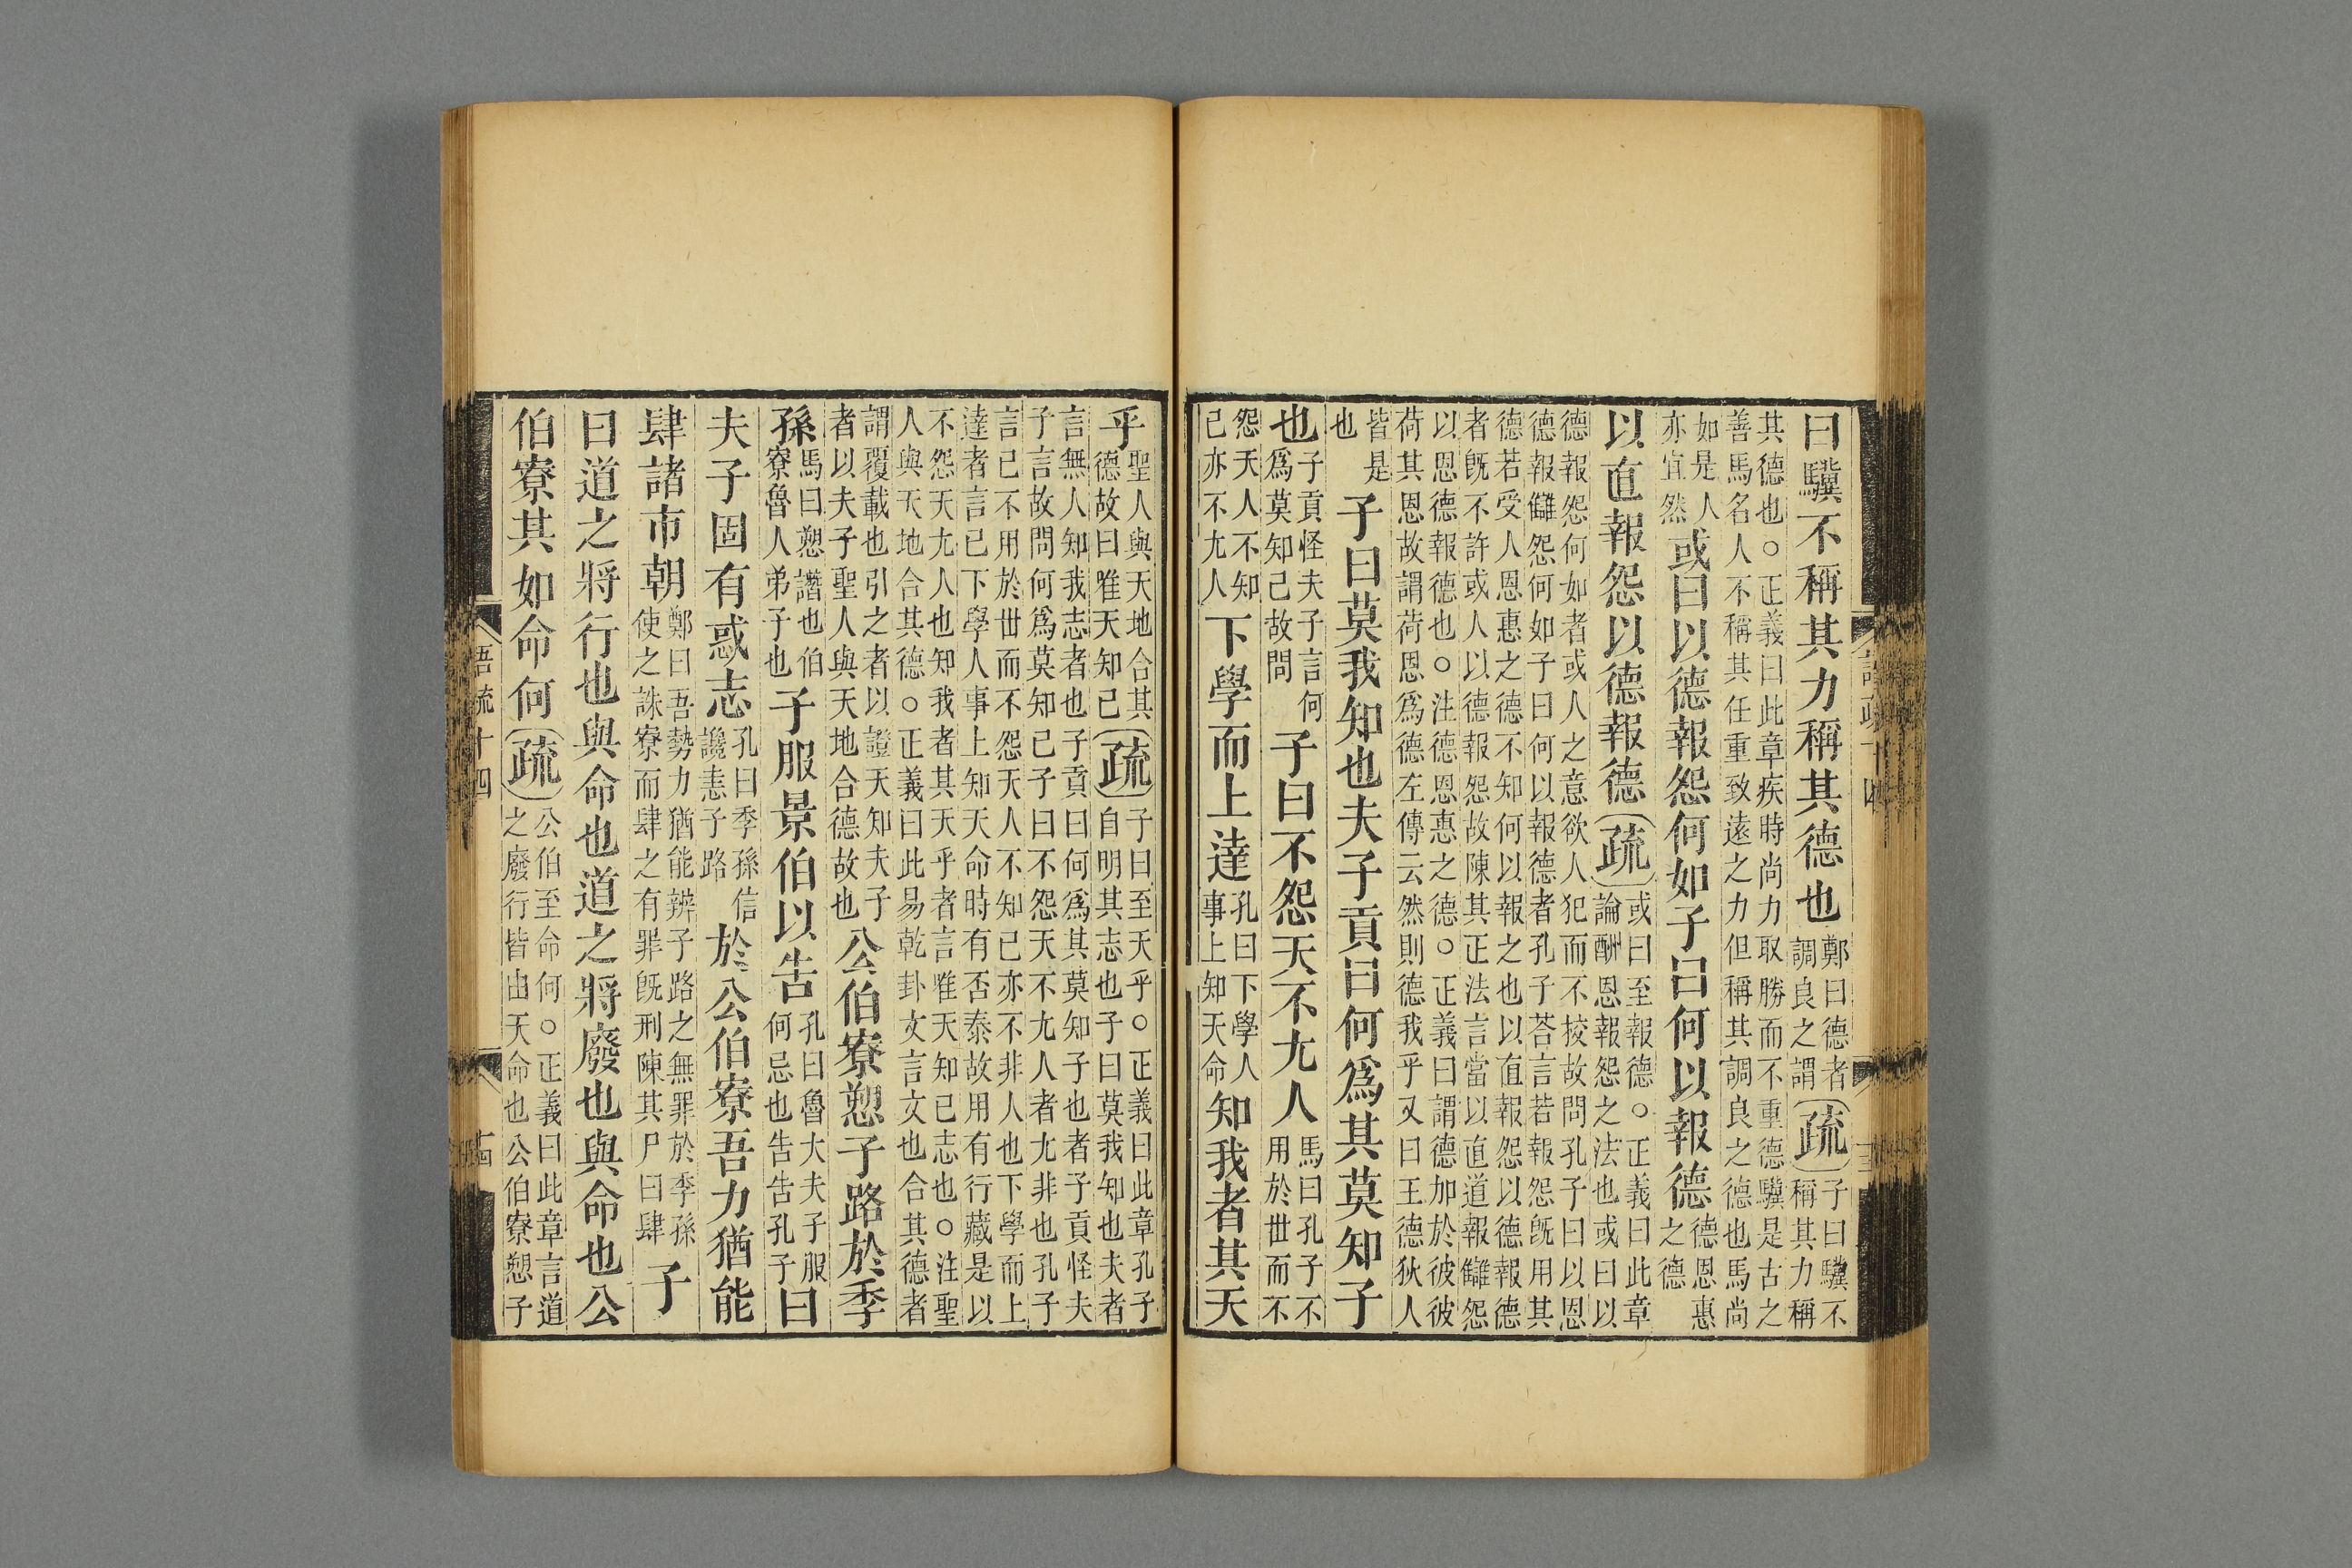 曰驥不稱其力稱其德也鄭曰德者調良之謂疏子曰驥不稱其力稱
其德也○正義曰此章疾時尚力取勝而不重德驥是古之
善馬名人不稱其任重致遠之力但稱其調良之德也馬尚
如是人亦宜然或曰以德報怨何如子曰何以報德德恩惠之德
以直報怨以德報德疏或曰至報德○正義曰此章論酬恩報怨之法也或曰以
德報怨何如者或人之意欲人犯而不挍故問孔子曰以恩
德報讎怨何如子曰何以報德者孔子荅言若報怨既用其
德若受人恩惠之德不知何以報之也以直報怨以德報德
者既不許或人以德報怨故陳其正法言當以直道報讎怨
以恩德報德也○注德恩惠之德○正義曰謂德加於彼彼
荷其恩故謂荷恩爲德左傳云然則德我乎又曰王德狄人
皆是也子曰莫我知也夫子貢曰何爲其莫知子
也子貢怪夫子言何爲莫知己故問子曰不怨天不尤人馬曰孔子不用於世而不
怨天人不知己亦不尤人下學而上達孔曰下學人事上知天命知我者其天
乎聖人與天地合其德故曰唯天知己疏子曰至天乎○正義曰此章孔子自明其志也子曰莫我知也夫者
言無人知我志者也子貢曰何爲其莫知子也者子貢怪夫
子言故問何爲莫知己子曰不怨天不尤人者尤非也孔子
言己不用於世而不怨天人不知己亦不非人也下學而上
達者言己下學人事上知天命時有否泰故用有行藏是以
不怨天尤人也知我者其天乎者言唯天知己志也○注聖
人與天地合其德○正義曰此易乾卦文言文也合其德者
謂覆載也引之者以證天知夫子
者以夫子聖人與天地合德故也公伯寮愬子路於季
孫馬曰愬譖也伯寮魯人弟子也子服景伯以告孔曰魯大夫子服何忌也告告孔子曰
夫子固有惑志孔曰季孫信讒恚子路於公伯寮吾力猶能
肆諸市朝鄭曰吾勢力猶能辨子路之無罪於季孫使之誅寮而肆之有罪既刑陳其尸曰肆子
曰道之將行也與命也道之將廢也與命也公
伯寮其如命何疏公伯至命何○正義曰此章言道之廢行皆由天命也公伯寮愬子
語疏十四
十四